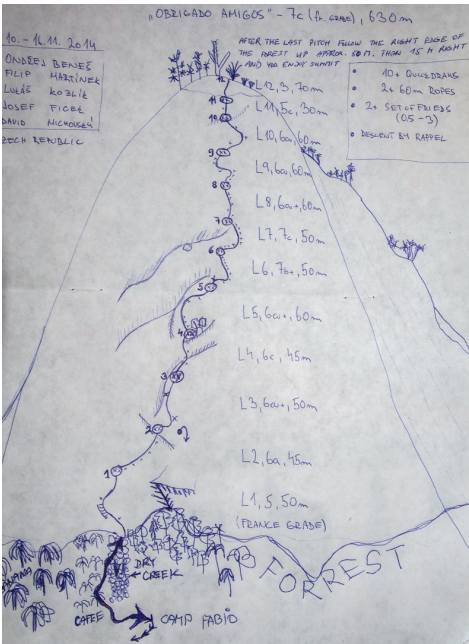 „OBRIGADO AMIGOS" - 7c (fr. GRADE), 630m
10. - 16.11. 2014
ONDŘEJ BENEŠ
FILIP MARTÍNEK
LUKÁŠ KOZLÍK
JOSEF FICEK
DAVID
ZECH REPUBLIC
AFTER THE LAST PITCH FOLLOW THE RIGHT EDGE OF
THE FOREST UP APPROX. 50 M. THAN 15 M RIGHT
AND YOU ENJOY SUMMIT
• 10+ QUICKDRAWS
• 2+ 60m ROPES
• 2+ SET OF FRIEDS
(0.5 - 3)
• DESCENT BY RAPPEL
12
L12, 3, 70m
11
L11, 5c, 30m
10
L10, 6a, 60m
9
L9, 6a, 60m
8
L8, 6a+, 60m
7
L7, 7c, 50m
6
L6, 7b+, 50m
5
L5, 6a+, 60m
4
L4, 6c, 45m
3
L3, 6a+, 50m
2
L2, 6a, 45m
1
L1, 5, 50m
(FRANCE GRADE)
FORREST
BANANA
DRY
CREEK
CAFEE
CAMP FABIO